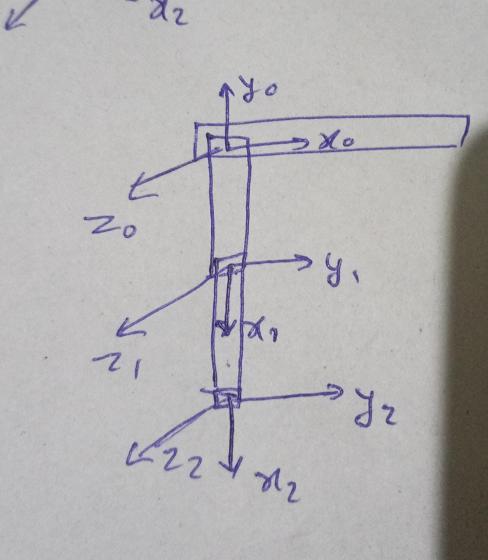 x2
y0
x0
z0
y1
x1
z1
y2
z2
x2